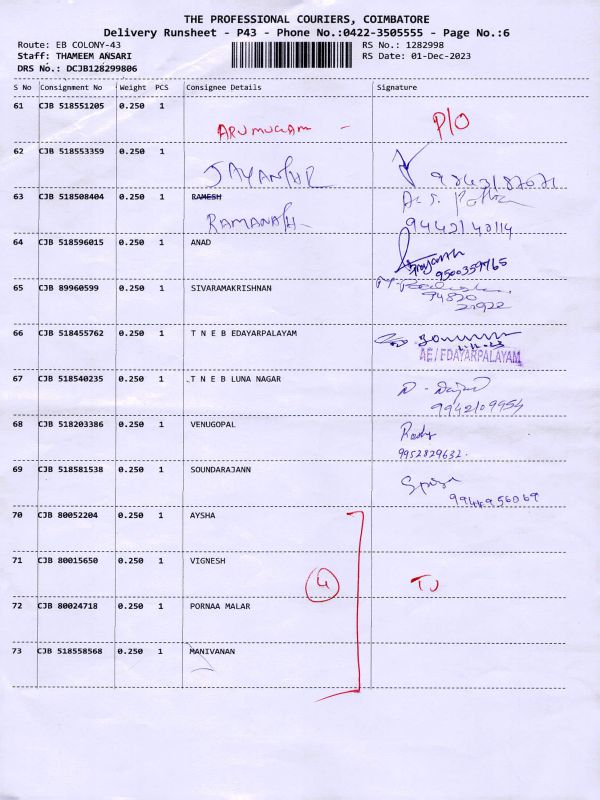 THE PROFESSIONAL COURIERS, COIMBATORE
Delivery Runsheet - P43 - Phone No.:0422-3505555 - Page No.:6
Route: EB COLONY-43 RS No.: 1282998
Staff: THAMEEM ANSARI RS Date: 01-Dec-2023
DRS No.: DCJB128299806
S No Consignment No Weight PCS Consignee Details Signature
61 CJB 518551205 0.250 1
ARUMUGAM - P/O
62 CJB 518553359 0.250 1
63 CJB 518508404 0.250 1 RAMESH
9442140114
64 CJB 518596015 0.250 1 ANAD
9500359765
65 CJB 89960599 0.250 1 SIVARAMAKRISHNAN
94820
21922
66 CJB 518455762 0.250 1 T N E B EDAYARPALAYAM
AE/EDAYARPALAYAM
67 CJB 518540235 0.250 1 .T N E B LUNA NAGAR
9942109954
68 CJB 518203386 0.250 1 VENUGOPAL
9952829632.
69 CJB 518581538 0.250 1 SOUNDARAJANN
9944956069
70 CJB 80052204 0.250 1 AYSHA
71 CJB 80015650 0.250 1 VIGNESH
4 TJ
72 CJB 80024718 0.250 1 PORNAA MALAR
73 CJB 518558568 0.250 1 MANIVANAN